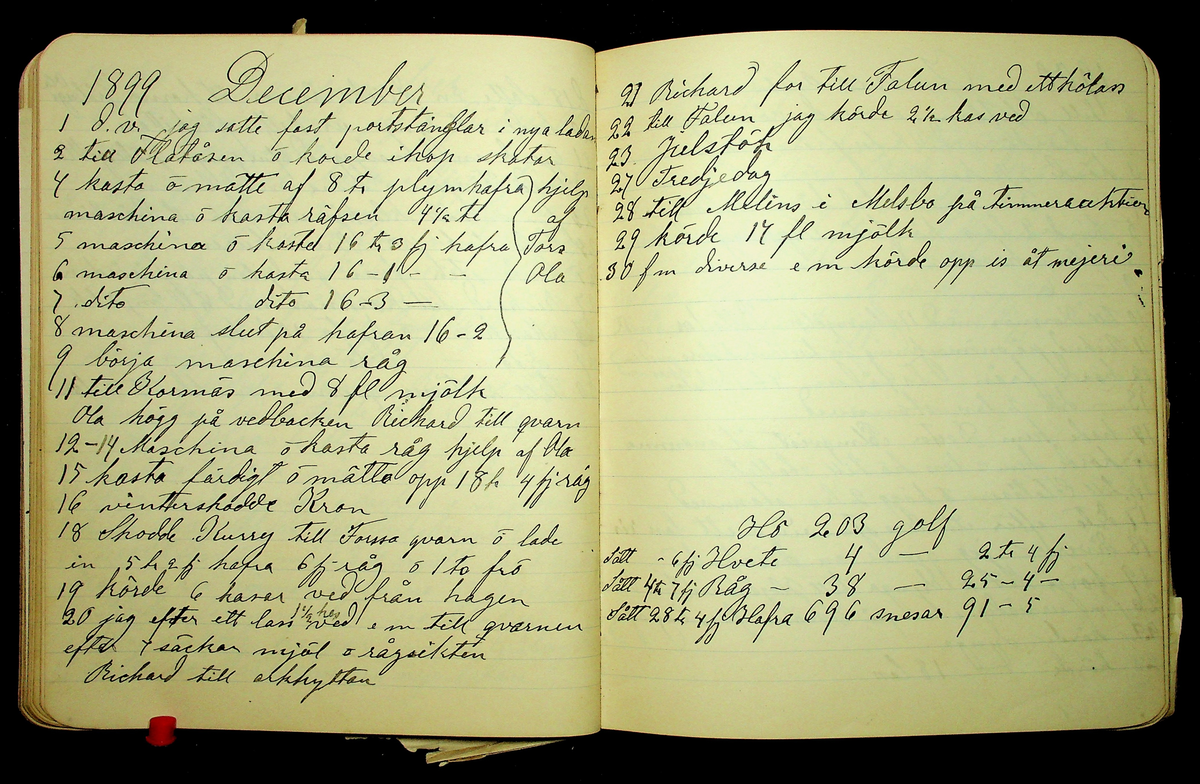 1899 December
1 d.v. jag satte fast portstänglar i nya ladan
2 till Olalåsen ö korde ihop skatar
4 kasta ö mätte af 8 tr plymhafra hjelp
maschina ö kasta räfsen 4½ te af
5 maschina ö kasta 16 tr 3 fj hafra Tors
6 maschina ö kasta 16 - 1 - - Ola
7 dito dito 16-3 —
8 maschina slut på hafran 16 - 2
9 börja maschina råg
11 till Korsnäs med 8 fl mjölk
Ola högg på vedbacken Richard till qvarn
12-14 Maschina ö kasta råg hjelp af Ola
15 kasta färdigt ö mätte opp 18 tr 4 fj råg
16 vinterskodde Kron
18 Skodde Kurry till Forssa qvarn ö lade
in 5 tr 2 fj hafra 6 fj råg ö 1 to frö
19 körde 6 kasar ved från hagen
20 jag efter ett lass 1½ kas ved e m till qvarnen
efter 7 säckar mjöl o rågsikten
Richard till arkhyttan
21 Richard for till Falun med ett kolass
22 till Falun jag körde 2½ kas ved
23. Julstök
27 Tredjedag
28 till Melins i Melsbo på timmerauktion
29 körde 17 fl mjölk
30 f m diverse e m körde opp is åt mejeri
Hö 203 golf
Sått - 6 fj Hvete 4 — 2 tr 4 fj
Sått 4 tr 7 fj Råg - 38 — 25 - 4 -
Sått 28 tr 4 fj Hafra 696 snesar 91 - 5